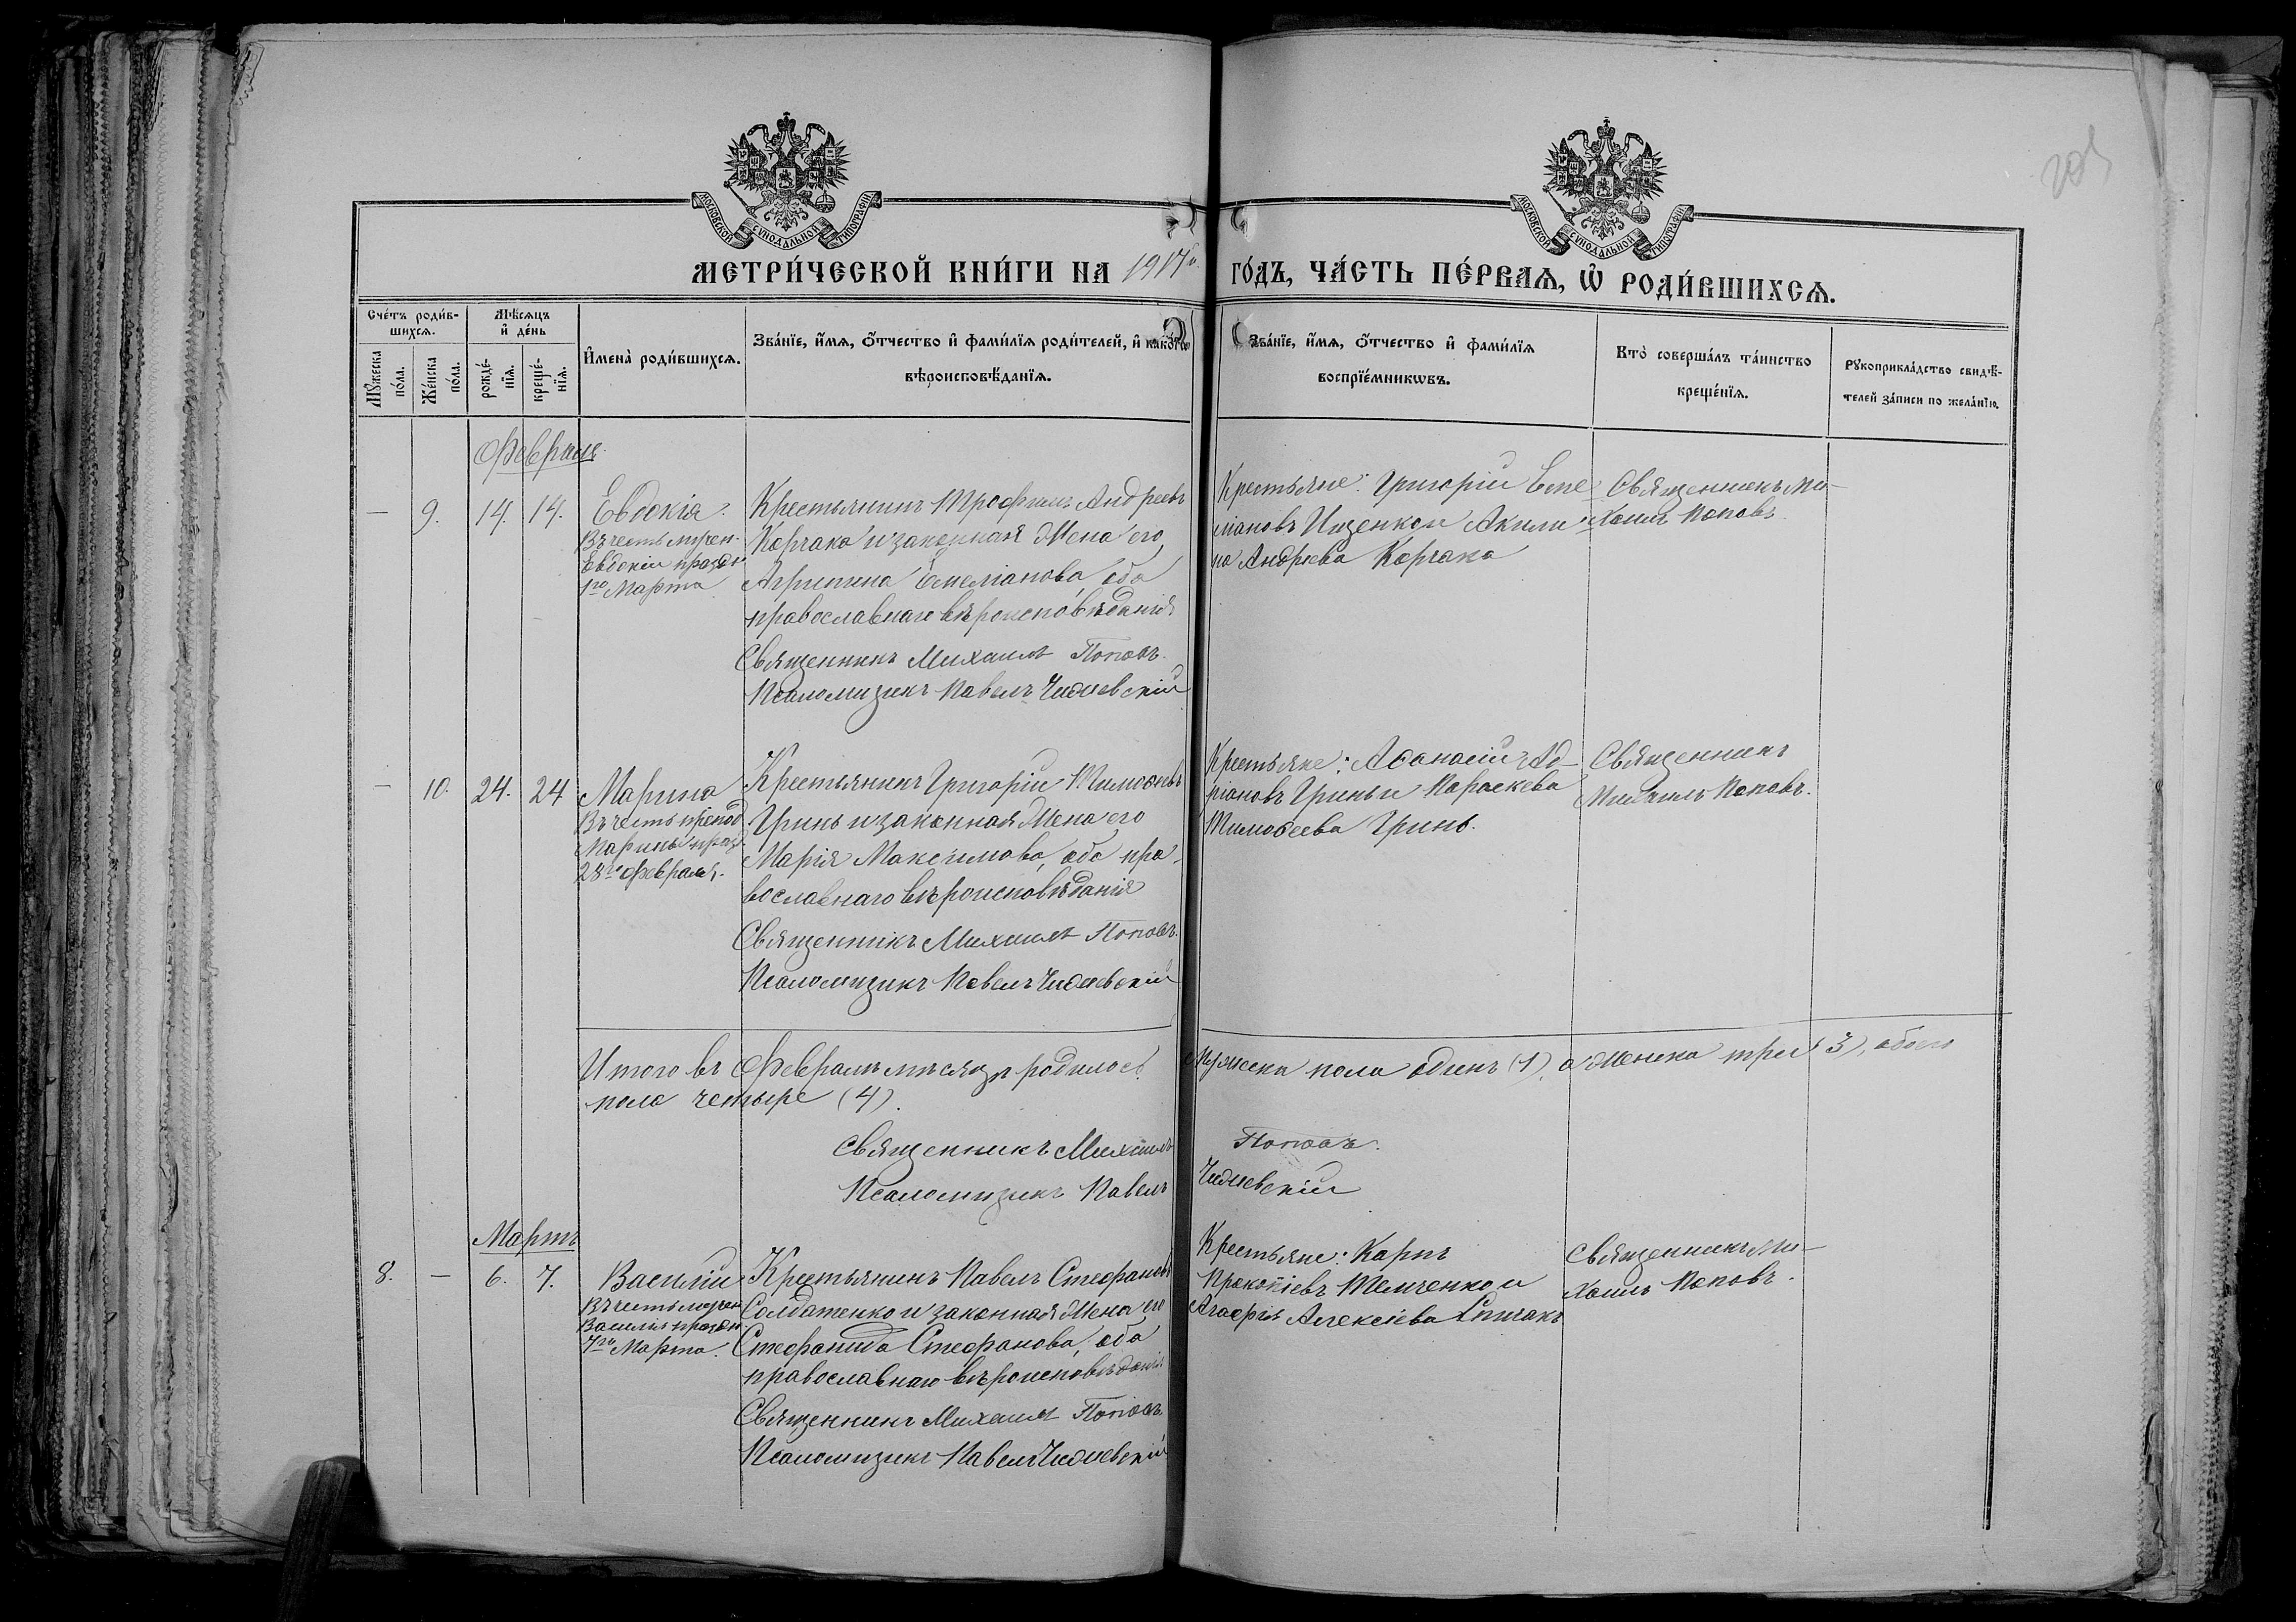 МОСКОВСКОЙ СѴНОДАЛЬНОЙ ТИПОГРАФІИ
МОСКОВСКОЙ СѴНОДАЛЬНОЙ ТИПОГРАФІИ
МЕТРИ́ЧЕСКОЙ КНИ́ГИ НА 1917й
ГО́ДЪ, ЧА́СТЬ ПЕ́РВАѦ, Ѽ РОДИ́ВШИХСѦ.
Сче́тъ роди́вшихсѧ.
Мꙋ́жеска по́ла.
Же́нска по́ла.
Мѣ́сѧцъ и҆ де́нь
рожде́нїѧ.
креще́нїѧ.
И҆мена̀ роди́вшихсѧ.
Зва́нїе, и҆́мѧ, ѻ҆́тчество и҆ фами́лїѧ роди́телей, и҆ како́гѡ
вѣроисповѣ́данїѧ.
Зва́нїе, и҆́мѧ, ѻ҆́тчество и҆ фами́лїѧ
воспрїе́мникѡвъ.
Кто̀ соверша́лъ та́инство
креще́нїѧ.
Рꙋкоприкла́дство свидѣ́-
телей за́писи по жела́нїю.
Февраль
— 9. 14. 14. Евдокія.
Въ честь мучен.
Евдокіи праздн.
1го Марта
Крестьянинъ Трофимъ Андреевъ
Корчака и законная жена его
Агрипина Емеліанова, оба
православнаго вѣроисповѣданія
Священникъ Михаилъ Поповъ.
Псаломщикъ Павелъ
Крестьяне: Григорій Еме-
ліановъ Ищенко и Акили-
на Андреева Корчака
Священникъ Ми-
хаилъ Поповъ.
— 10. 24. 24 Марина
Въ честь препод.
Марины праз.
28го февраля.
Крестьянинъ Григорій Тимоѳеевъ
Гринь и законная жена его
Марія Максимова, оба пра-
вославнаго вѣроисповѣданія
Священникъ Михаилъ Поповъ.
Псаломщикъ Павелъ
Крестьяне: Аѳанасій Ад-
ріановъ Гринь и Параскева
Тимоѳеева Гринь.
Священникъ
Михаилъ Поповъ.
Итого въ Февралѣ мѣсяцѣ родилось мужеска пола одинъ (1), а женска три (3), обоего
пола четыре (4).
Священникъ Михаилъ Поповъ.
Псаломщикъ Павелъ
Мартъ
8. — 6. 7. Василій
Въ честь мучен.
Василія праздн.
7го Марта.
Крестьянинъ Павелъ Стефановъ
Солдатенко и законная жена его
Стефанида Стефанова, оба
православнаго вѣроисповѣданія
Священникъ Михаилъ Поповъ.
Псаломщикъ Павелъ
Крестьяне: Карпъ
Прокопіевъ Темченко и
Агафія Алексіева Спичакъ
Священникъ Ми-
хаилъ Поповъ.